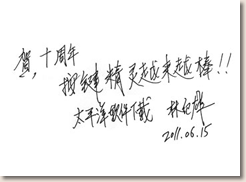 贺,十周年
按键精灵越来越棒!!
太平洋软件下载 林
2011.06.15